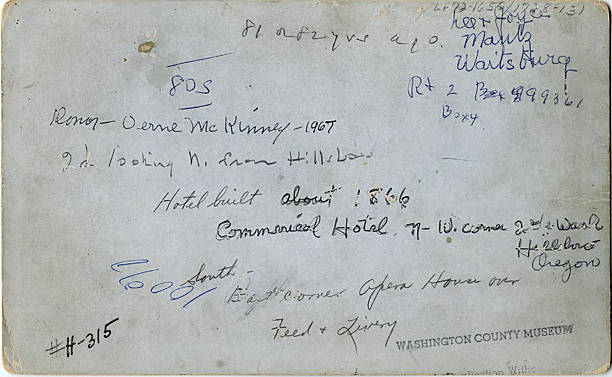 81 or 82 yrs ago.
Lee & Joyce
Mantz
Waitsburg
Rt 2 Box 99361
Box 4
80s
Donor - Verne McKinney - 1967
2d. looking N. from Hillsboro
Hotel built about 1866
Commercial Hotel. N-W. corner 2nd & Wash
Hillsboro
Oregon
South-
East corner Opera House over
Feed & Livery
#H-315
WASHINGTON COUNTY MUSEUM